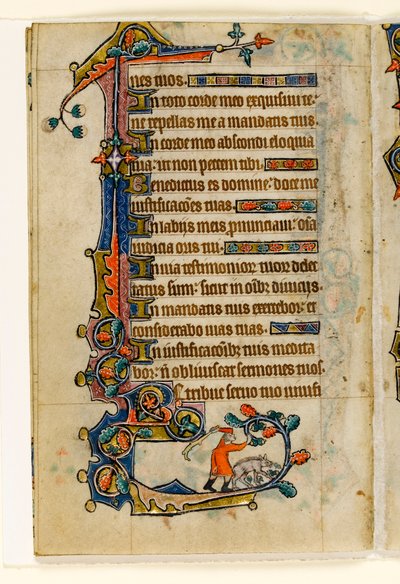 nes tuos.
In toto corde meo exquisiui te:
ne repellas me a mandatis tuis
In corde meo abscondi eloquia
tua: ut non peccem tibi.
Benedictus es domine: doce me
iustificacões tuas.
In labijs meis pnunciaui: oĩa
iudicia oris tui.
In uia testimonioꝝ tuoꝝ delec
tatus sum: sicut in oĩbꝫ diuicijs
In mandatis tuis exercebor: et
considerabo uias tuas.
In iustificacõibꝫ tuis medita
bor: ñ obliuiscar sermones tuos.
Retribue seruo tuo uiuifi